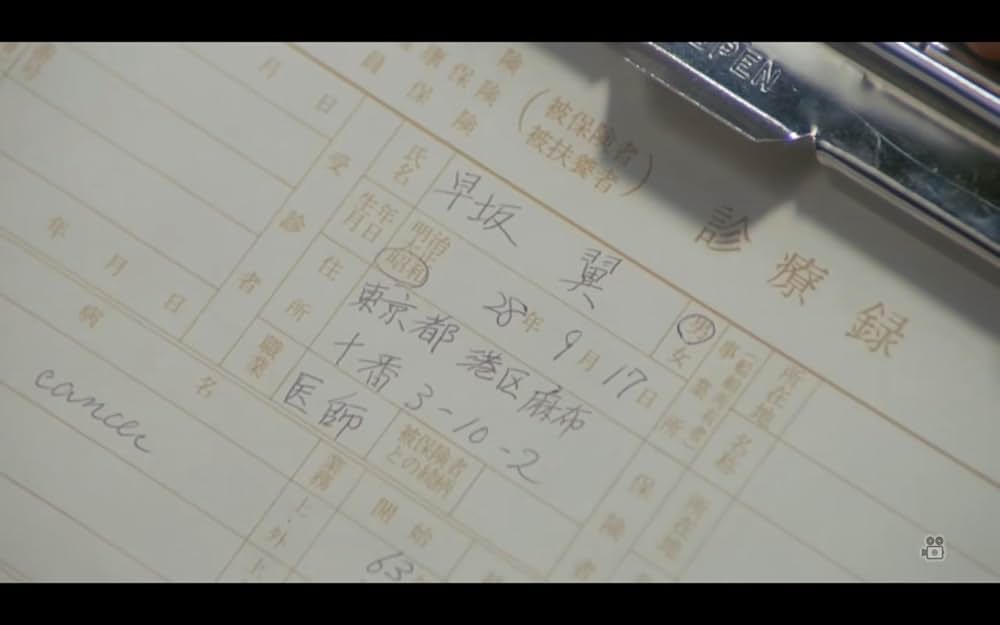 OPEN
診療録
保険
(被保険者
被扶養者)
氏名
早坂 翼
男 女
生年月日
明治
昭和
28年9月17日
住所
東京都港区麻布
十番3-10-2
職業
医師
被保険者
との続柄
受診者
所在地
名称
保険者
所在地
年月日
病名
業務
上・外
開始
cancer
63